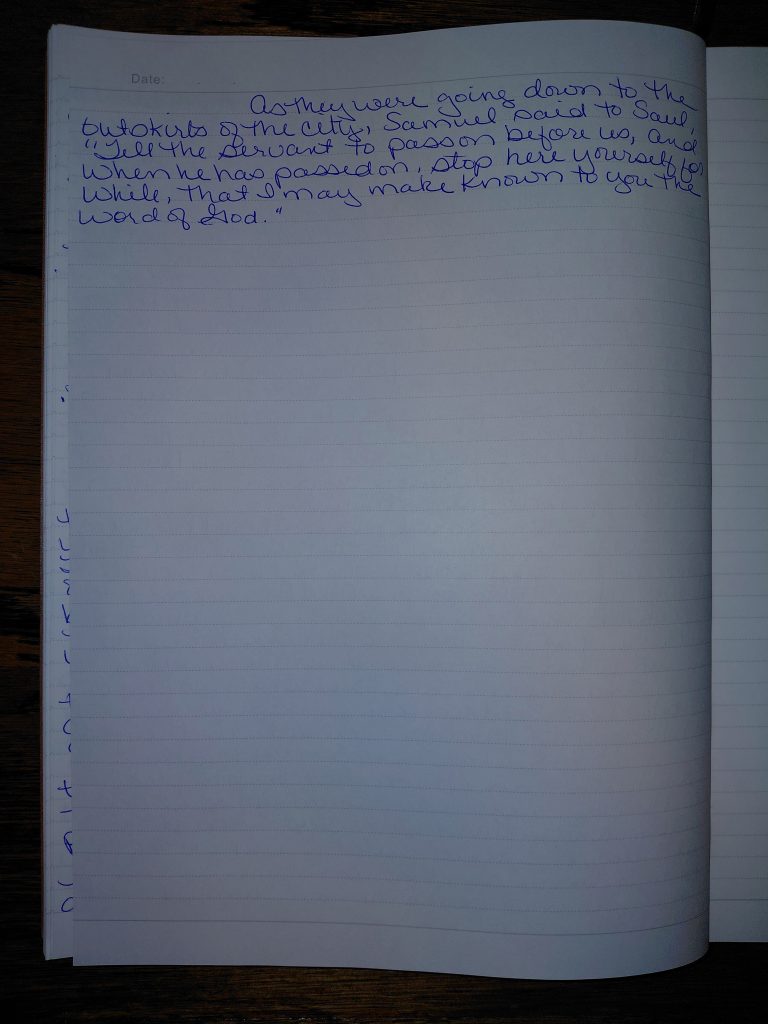 Date:
As they were going down to the
outskirts of the city, Samuel said to Saul,
"Tell the servant to pass on before us, and
when he has passed on, stop here yourself for
while, that I may make known to you the
word of God."